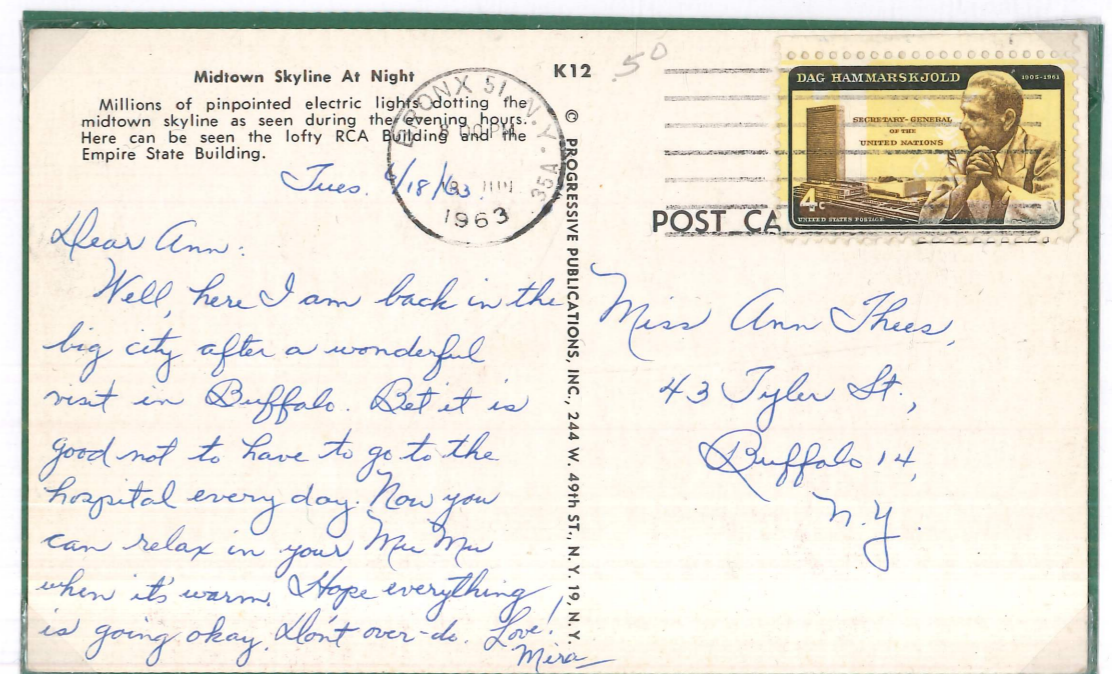 Midtown Skyline At Night
Millions of pinpointed electric lights dotting the
midtown skyline as seen during the evening hours.
Here can be seen the lofty RCA Building and the
Empire State Building.
Tues. 6/18/63.
Dear Ann:
Well, here I am back in the
big city after a wonderful
visit in Buffalo. Bet it is
good not to have to go to the
hospital every day. Now you
can relax in your Mu Mu
when it's warm. Hope everything
is going okay. Don't over-do. Love!
Mira
K12
© PROGRESSIVE PUBLICATIONS, INC., 244 W. 49th ST., N.Y. 19, N.Y.
.50
BRONX 51, N.Y.
8 00 PM
35A
1963
DAG HAMMARSKJOLD 1905-1961
SECRETARY-GENERAL
OF THE
UNITED NATIONS
4c
UNITED STATES POSTAGE
POST CA
Miss Ann Thees,
43 Tyler St.,
Buffalo 14,
N.Y.